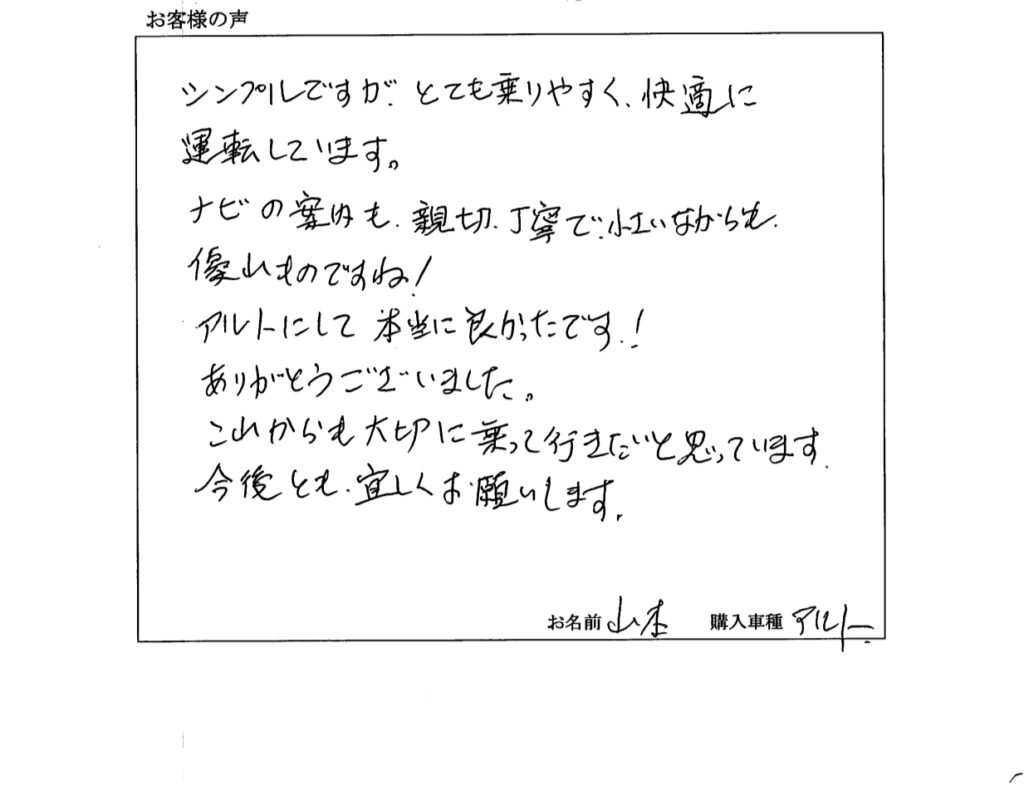 お客様の声
シンプルですが、とても乗りやすく、快適に
運転しています。
ナビの案内も、親切、丁寧で、小さいながらも、
優れものですね!
アルトにして本当に良かったです!
ありがとうございました。
これからも大切に乗って行きたいと思っています。
今後とも、宜しくお願いします。
お名前 山本 購入車種 アルト